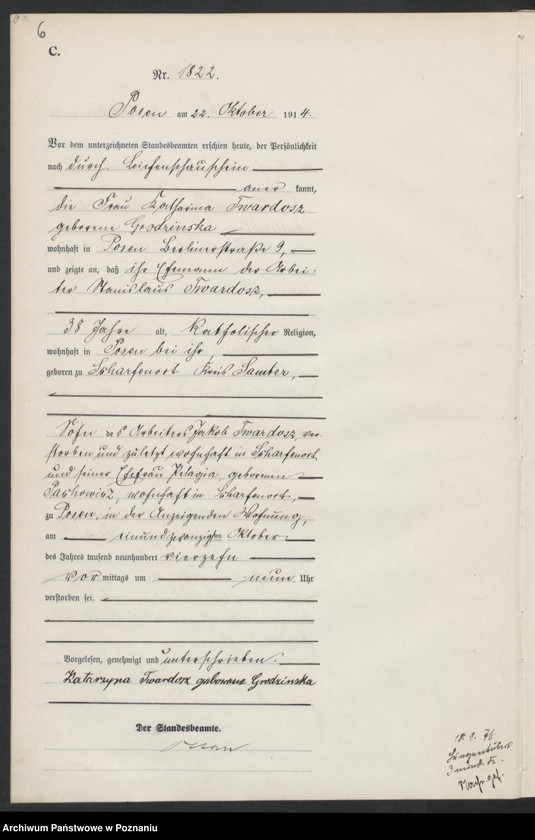 6
C.
Nr. 1822.
Posen am 22. Oktober 1914.
Vor dem unterzeichneten Standesbeamten erschien heute, der Persönlichkeit
nach durch Leichenschauschein
aner kannt,
die Frau Katharina Twardosz
geborene Grodzinska
wohnhaft in Posen Berlinerstraße 9,
und zeigte an, daß ihr Ehemann der Arbei-
ter Stanislaus Twardosz,
38 Jahre alt, katholischer Religion,
wohnhaft in Posen bei ihr,
geboren zu Scharfenort Kreis Samter,
Sohn des Arbeiters Jakob Twardosz, ver
storben und zuletzt wohnhaft in Scharfenort
und seiner Ehefrau Pelagia geborenen
wohnhaft in Scharfenort,
zu Posen, in der Anzeigenden Wohnung,
am einundzwanzigsten Oktober
des Jahres tausend neunhundert vierzehn
vor mittags um neun Uhr
verstorben sei.
Vorgelesen, genehmigt und unterschrieben.
Katarzyna Twardosz geborene Grodzinska
Der Standesbeamte.
18. 9. 76
Archiwum Państwowe w Poznaniu